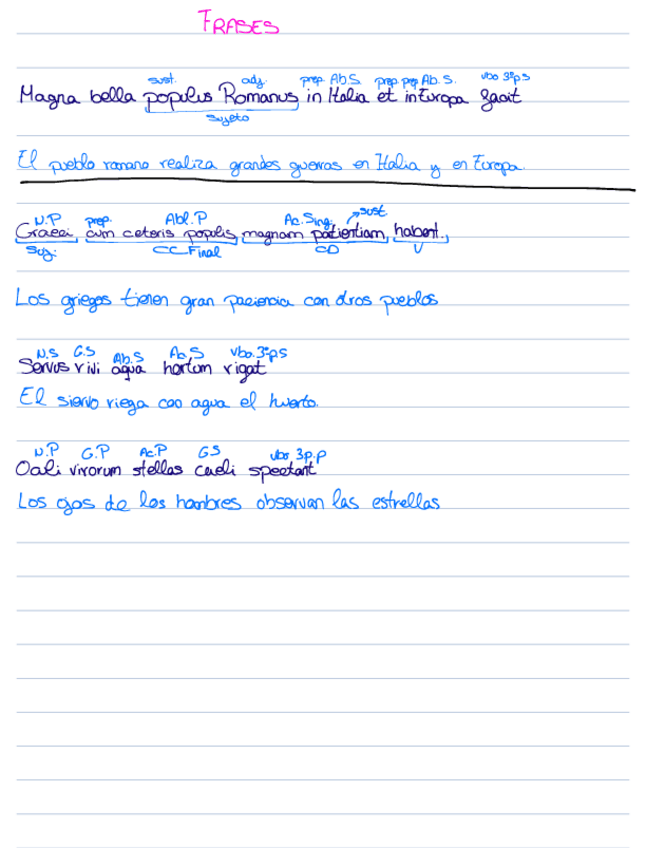 FRASES
sust. adj. prep. Ab.S. prep. prep Ab. S. vbo 3ªp s
Magna bella populus Romanus in Italia et in Europa facit
Sujeto
El pueblo romano realiza grandes guerras en Italia y en Europa.
N.P prep. Abl.P Ac.Sing. sust.
Graeci, cum ceteris populis, magnam patientiam, habent.,
Suj. CC Final CD V
Los griegos tienen gran paciencia con otros pueblos
N.S G.S Ab.S Ac.S vbo.3ªps
Servus rivi aqua hortum rigat
El siervo riega con agua el huerto.
N.P G.P Ac.P GS vbo 3p.p
Oculi virorum stellas caeli spectant
Los ojos de los hombres observan las estrellas